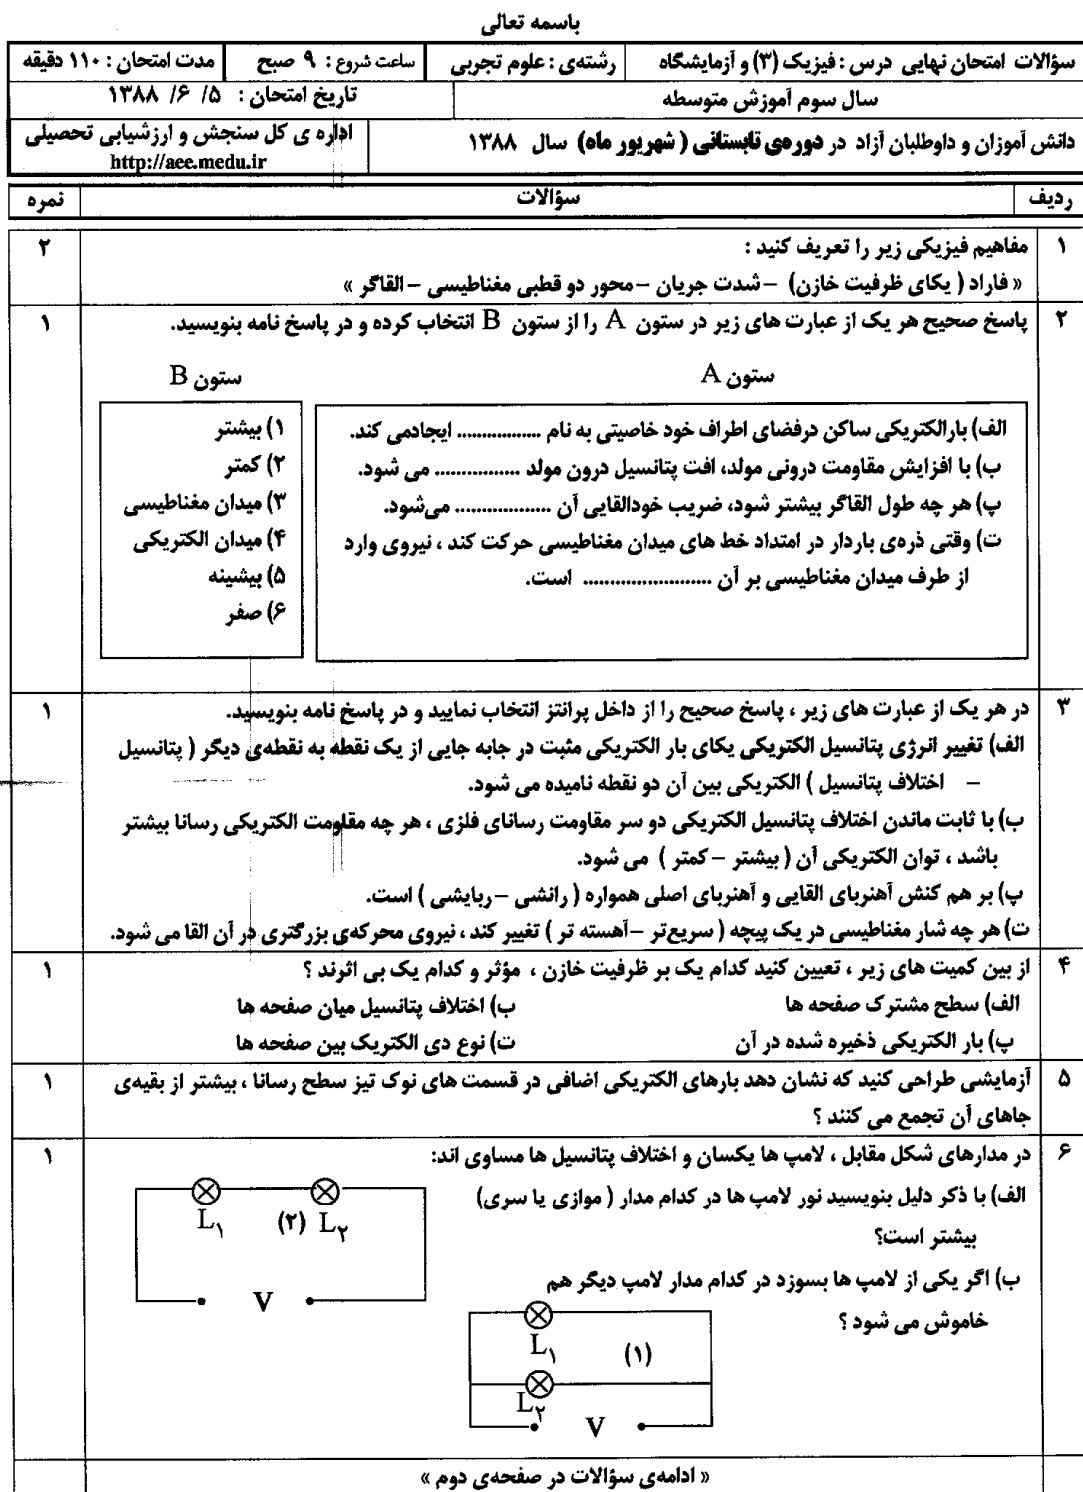 باسمه تعالی
سؤالات امتحان نهایی درس : فیزیک (۳) و آزمایشگاه رشته‌ی : علوم تجربی ساعت شروع : ۹ صبح مدت امتحان : ۱۱۰ دقیقه
سال سوم آموزش متوسطه تاریخ امتحان : ۵/ ۶/ ۱۳۸۸
دانش آموزان و داوطلبان آزاد در دوره‌ی تابستانی ( شهریور ماه) سال ۱۳۸۸ اداره ی کل سنجش و ارزشیابی تحصیلی
http://aee.medu.ir
ردیف سؤالات نمره
۱ مفاهیم فیزیکی زیر را تعریف کنید : ۲
« فاراد ( یکای ظرفیت خازن) – شدت جریان – محور دو قطبی مغناطیسی – القاگر »
۲ پاسخ صحیح هر یک از عبارت های زیر در ستون A را از ستون B انتخاب کرده و در پاسخ نامه بنویسید. ۱
ستون A ستون B
الف) بارالکتریکی ساکن درفضای اطراف خود خاصیتی به نام ................ ایجادمی کند.
ب) با افزایش مقاومت درونی مولد، افت پتانسیل درون مولد ................ می شود.
پ) هر چه طول القاگر بیشتر شود، ضریب خودالقایی آن .................. می‌شود.
ت) وقتی ذره‌ی باردار در امتداد خط های میدان مغناطیسی حرکت کند ، نیروی وارد
از طرف میدان مغناطیسی بر آن ........................ است.
۱) بیشتر
۲) کمتر
۳) میدان مغناطیسی
۴) میدان الکتریکی
۵) بیشینه
۶) صفر
۳ در هر یک از عبارت های زیر ، پاسخ صحیح را از داخل پرانتز انتخاب نمایید و در پاسخ نامه بنویسید. ۱
الف) تغییر انرژی پتانسیل الکتریکی یکای بار الکتریکی مثبت در جابه جایی از یک نقطه به نقطه‌ی دیگر ( پتانسیل
– اختلاف پتانسیل ) الکتریکی بین آن دو نقطه نامیده می شود.
ب) با ثابت ماندن اختلاف پتانسیل الکتریکی دو سر مقاومت رسانای فلزی ، هر چه مقاومت الکتریکی رسانا بیشتر
باشد ، توان الکتریکی آن ( بیشتر – کمتر ) می شود.
پ) بر هم کنش آهنربای القایی و آهنربای اصلی همواره ( رانشی – ربایشی ) است.
ت) هر چه شار مغناطیسی در یک پیچه ( سریع‌تر – آهسته تر ) تغییر کند ، نیروی محرکه‌ی بزرگتری در آن القا می شود.
۴ از بین کمیت های زیر ، تعیین کنید کدام یک بر ظرفیت خازن ، مؤثر و کدام یک بی اثرند ؟ ۱
الف) سطح مشترک صفحه ها ب) اختلاف پتانسیل میان صفحه ها
پ) بار الکتریکی ذخیره شده در آن ت) نوع دی الکتریک بین صفحه ها
۵ آزمایشی طراحی کنید که نشان دهد بارهای الکتریکی اضافی در قسمت های نوک تیز سطح رسانا ، بیشتر از بقیه‌ی ۱
جاهای آن تجمع می کنند ؟
۶ در مدارهای شکل مقابل ، لامپ ها یکسان و اختلاف پتانسیل ها مساوی اند: ۱
الف) با ذکر دلیل بنویسید نور لامپ ها در کدام مدار ( موازی یا سری)
بیشتر است؟
ب) اگر یکی از لامپ ها بسوزد در کدام مدار لامپ دیگر هم
خاموش می شود ؟
L۱ (۲) L۲
V
L۱ (۱)
L۲
V
« ادامه‌ی سؤالات در صفحه‌ی دوم »